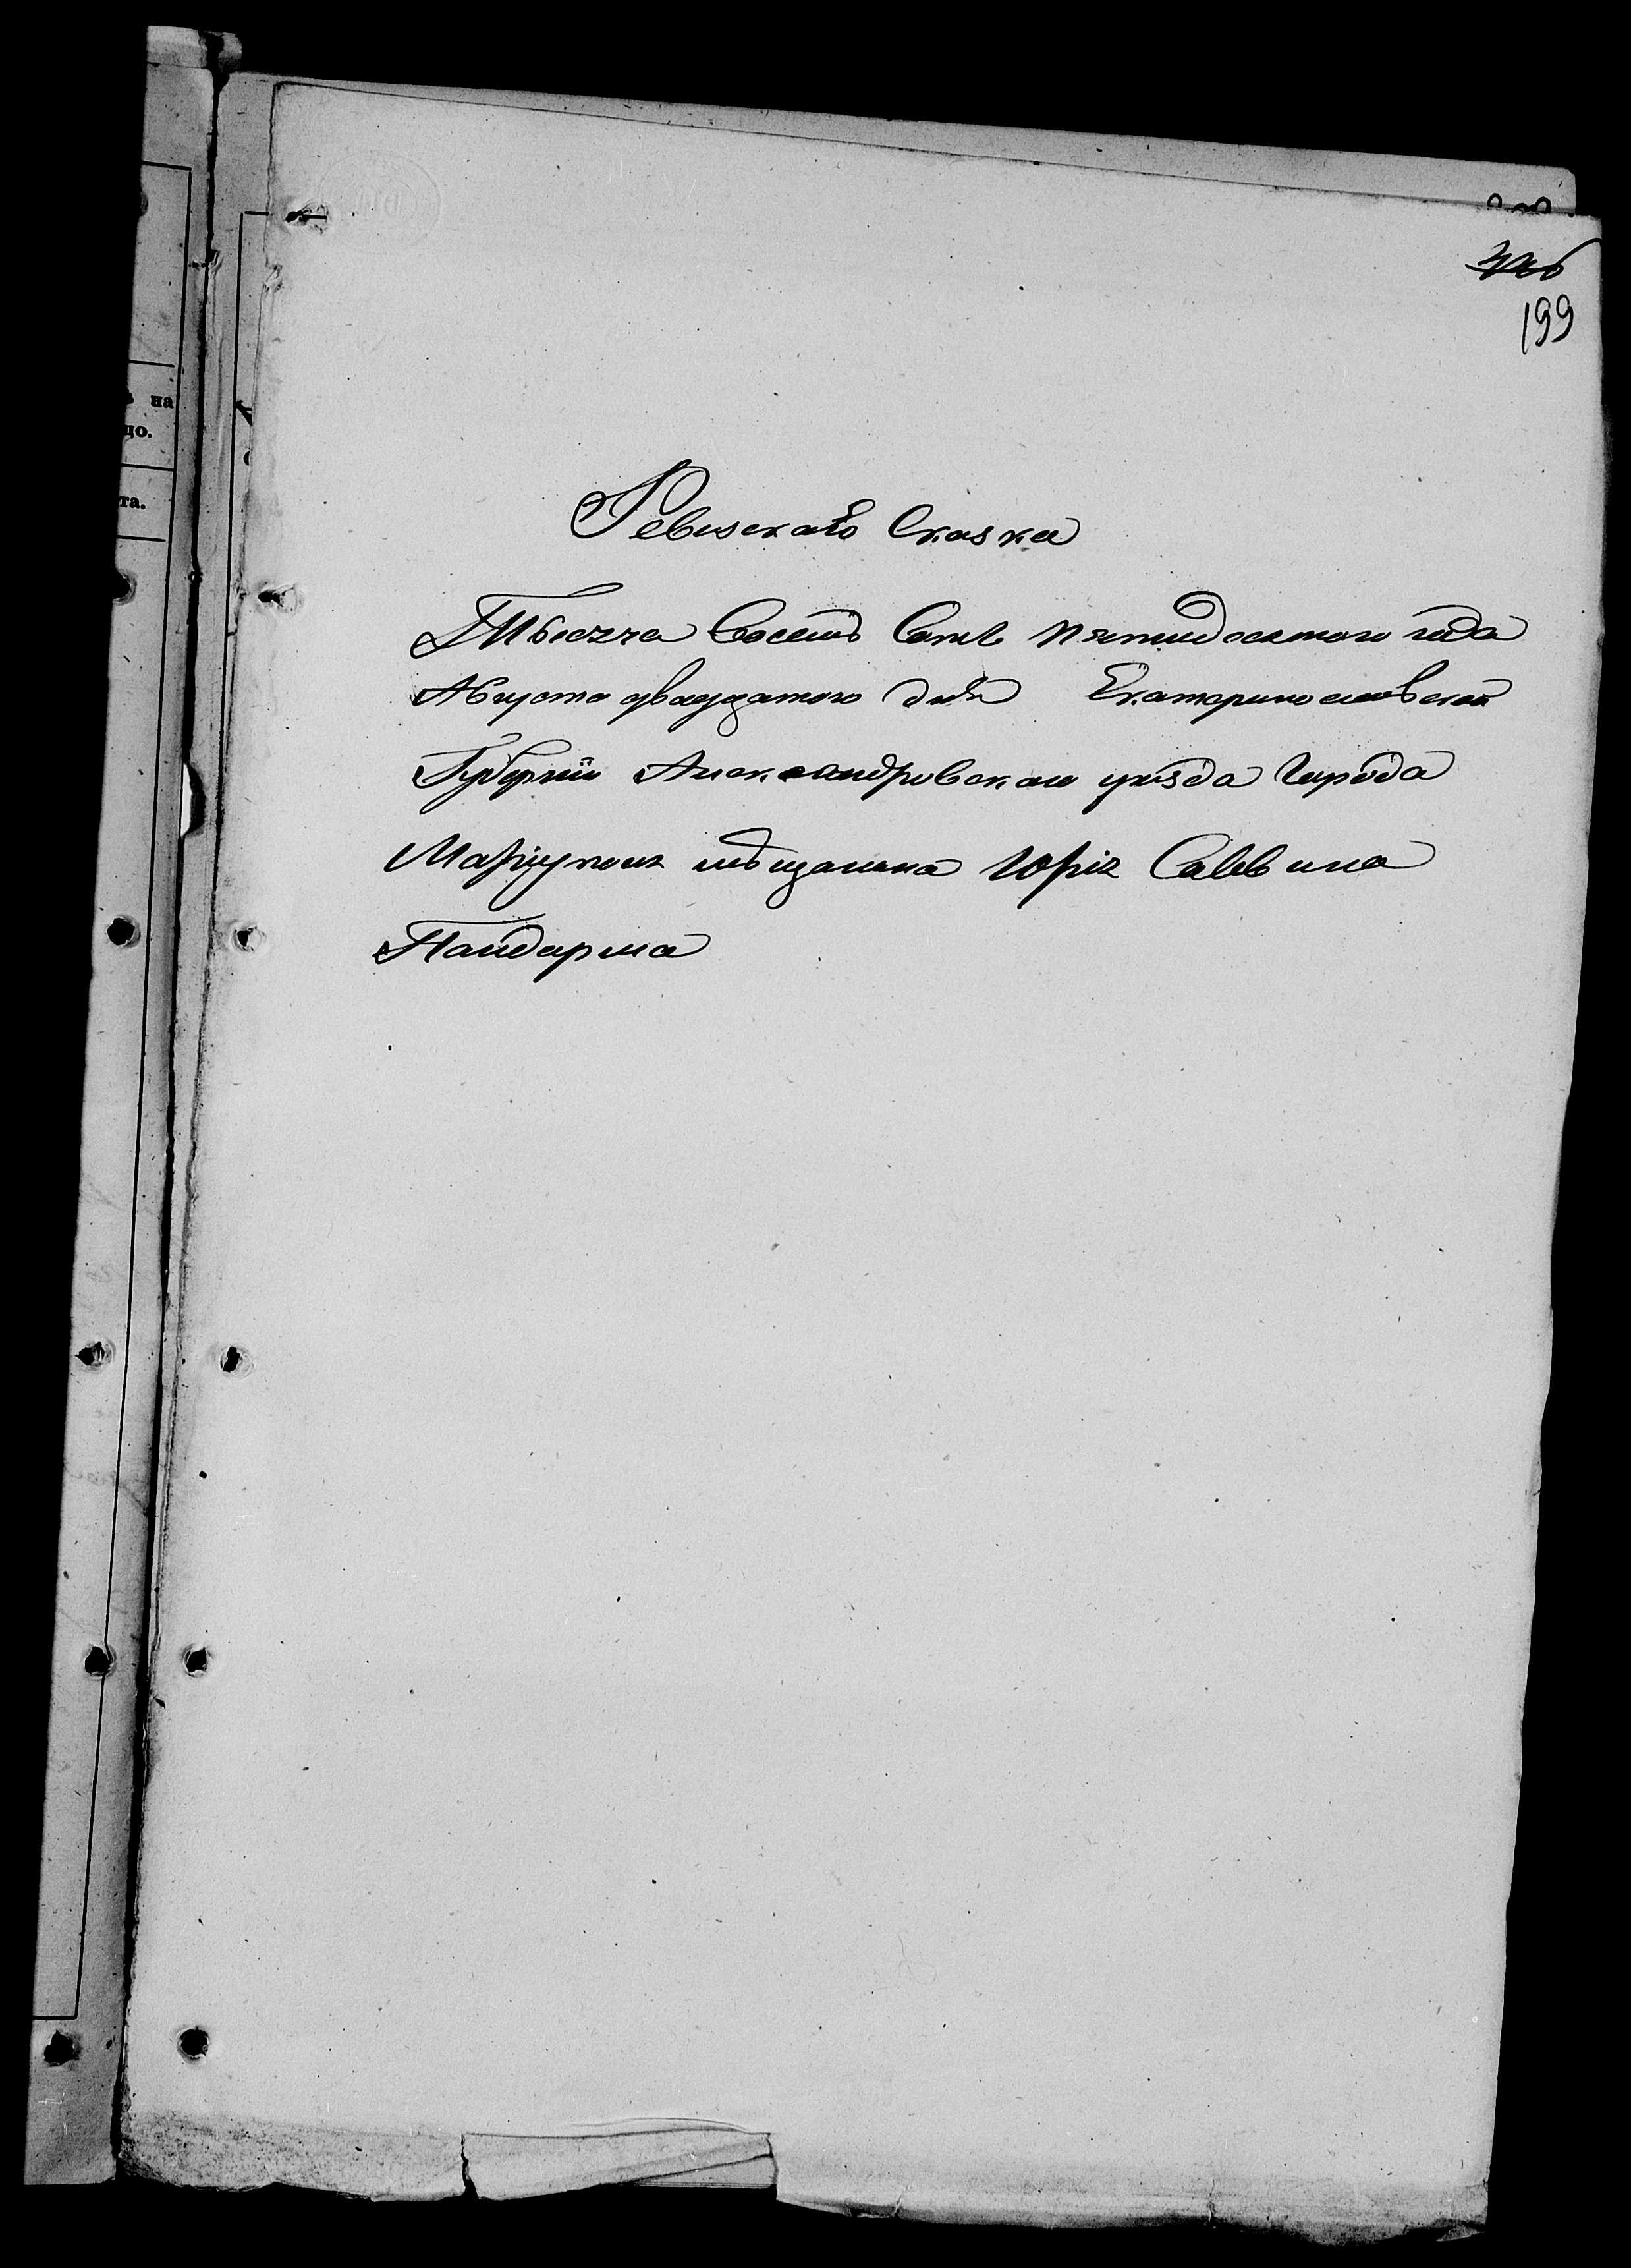 199
на
цо.
та.
Ревизскаго Сказка
Тысяча Восемь Сотъ пятидесятаго года
Августа двадцатого дня Екатеринославской
Губерніи Александровскаго уѣзда Города
Маріуполя мѣщанина Юрія Саввина
Пандарма